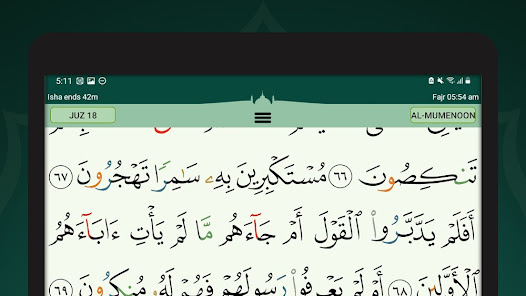 5:11
Isha ends 42m
Fajr 05:54 am
JUZ 18
AL-MUMENOON
تَنكِصُونَ ٦٦ مُسْتَكْبِرِينَ بِهِۦ سَٰمِرًا تَهْجُرُونَ ٦٧
أَفَلَمْ يَدَّبَّرُوا۟ ٱلْقَوْلَ أَمْ جَآءَهُم مَّا لَمْ يَأْتِ ءَابَآءَهُمُ
ٱلْأَوَّلِينَ ٦٨ أَمْ لَمْ يَعْرِفُوا۟ رَسُولَهُمْ فَهُمْ لَهُۥ مُنكِرُونَ ٦٩